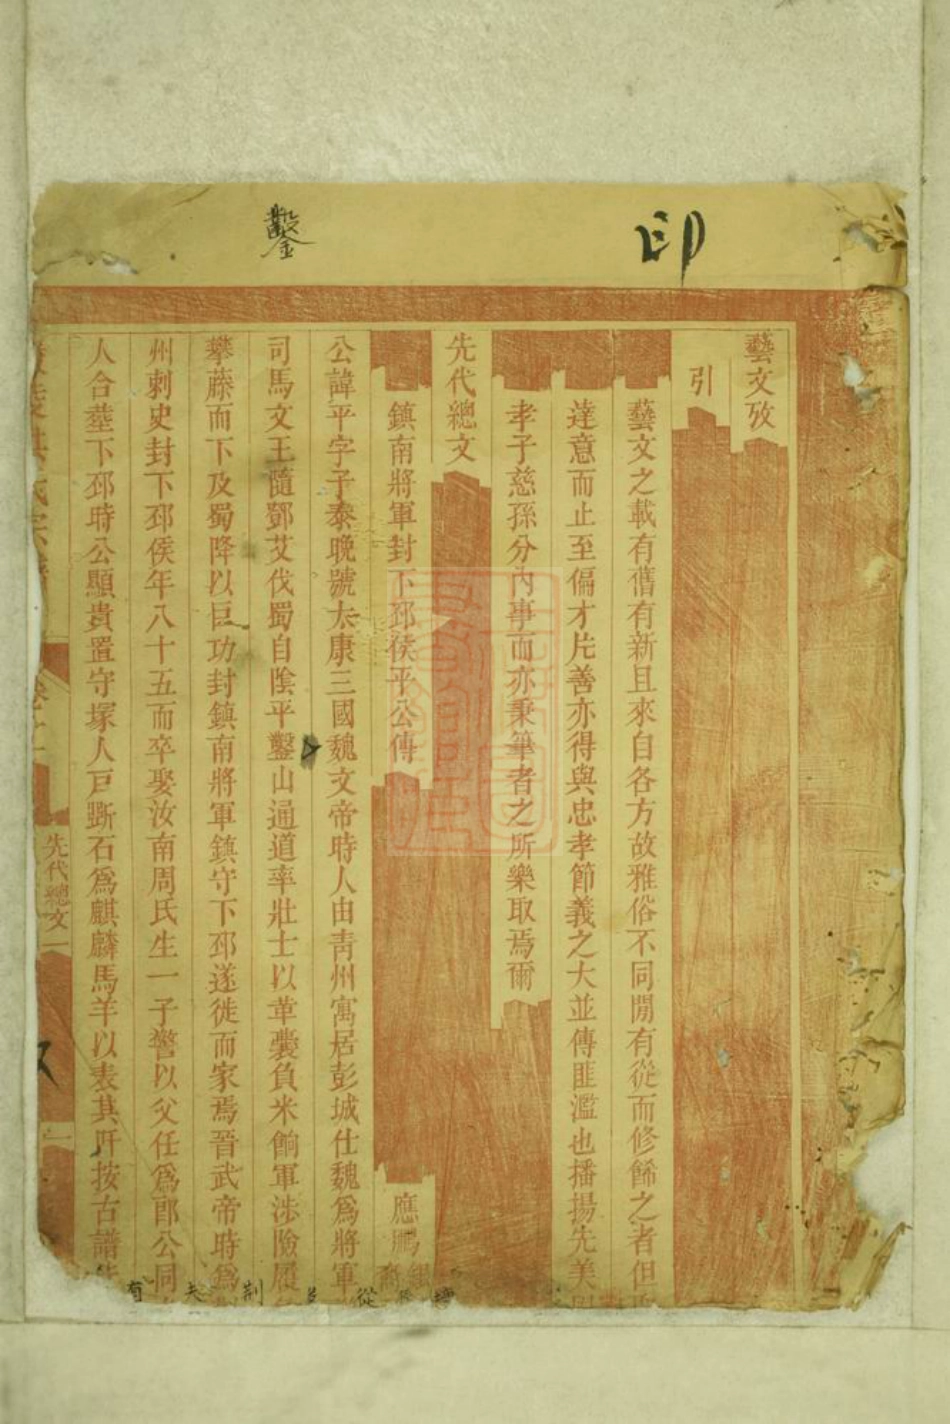 印
鑿
藝文攷
引
藝文之載有舊有新且來自各方故雅俗不同閒有從而修餙之者但
達意而止至偏才片善亦得與忠孝節義之大並傳匪濫也播揚先美
孝子慈孫分內事而亦秉筆者之所樂取焉爾
先代總文
鎮南將軍封下邳侯平公傳
應鵬
公諱平字子泰晚號太康三國魏文帝時人由青州寓居彭城仕魏爲將軍
司馬文王隨鄧艾伐蜀自陰平鑿山通道率壯士以革囊負米餉軍涉險履
攀藤而下及蜀降以巨功封鎮南將軍鎮守下邳遂徙而家焉晉武帝時爲
州刺史封下邳侯年八十五而卒娶汝南周氏生一子警以父任爲郎公同
人合塟下邳時公顯貴置守塚人戸斲石爲麒麟馬羊以表其阡按古譜
先代總文一